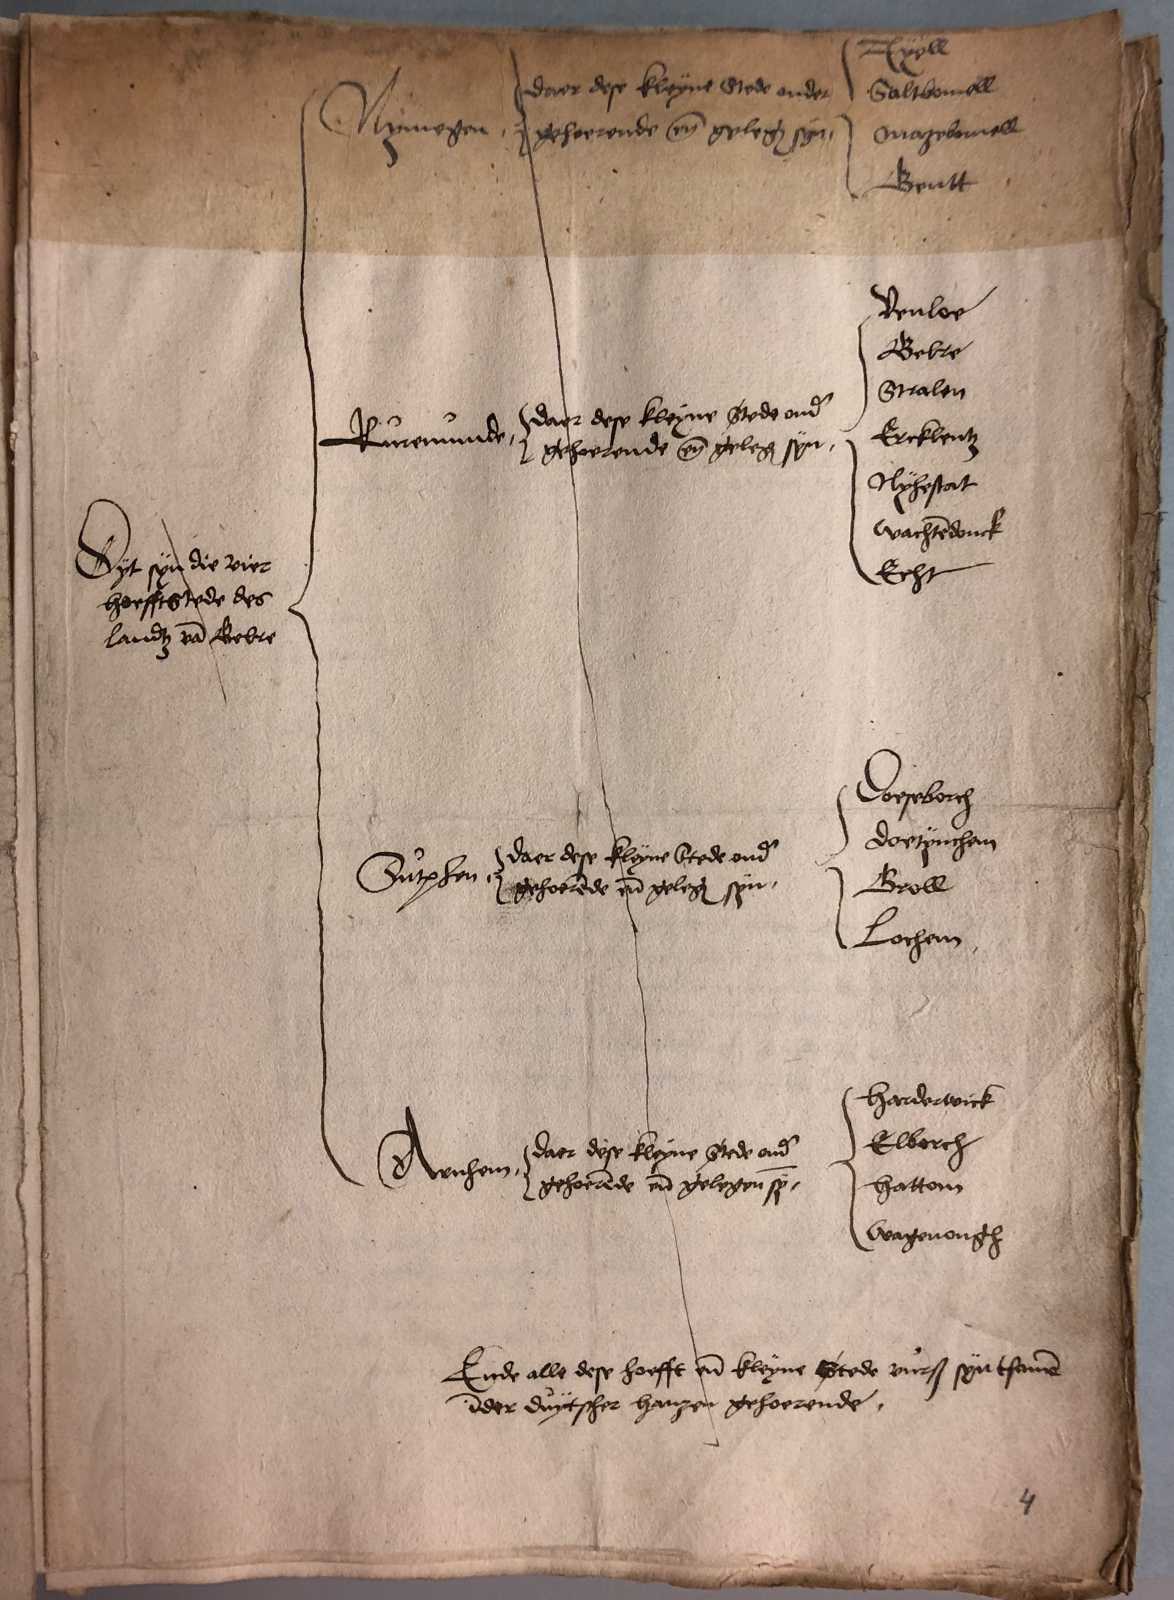 Dyt syn die vier
hoefftstede des
landtz vā Gelre
Nymegen,
daer dese kleyne stede onder
gehoerende eñ geleg syn,
Tyell
Saltbomell
Mazebomell
Gentt
Ruremunde,
daer dese kleyne stede ond
gehoerende eñ geleg syn,
Venloe
Gelre
Stralen
Ercklentz
Nyhestat
Wachtēdonck
Echt
Zutphen,
daer dese kleyne stede ond
gehoerēde eñ geleg syn,
Doeseborch
Doetynchem
Groll
Lochem,
Arnhem,
daer dese kleyne stede ond
gehoerēde eñ gelegen sȳ,
Harderwick
Elborch
Hattom
Wagenongh
Ende alle dese hoefft eñ kleyne stede vurß syn tsamē
īder duytscher hanzen gehoerende,
4